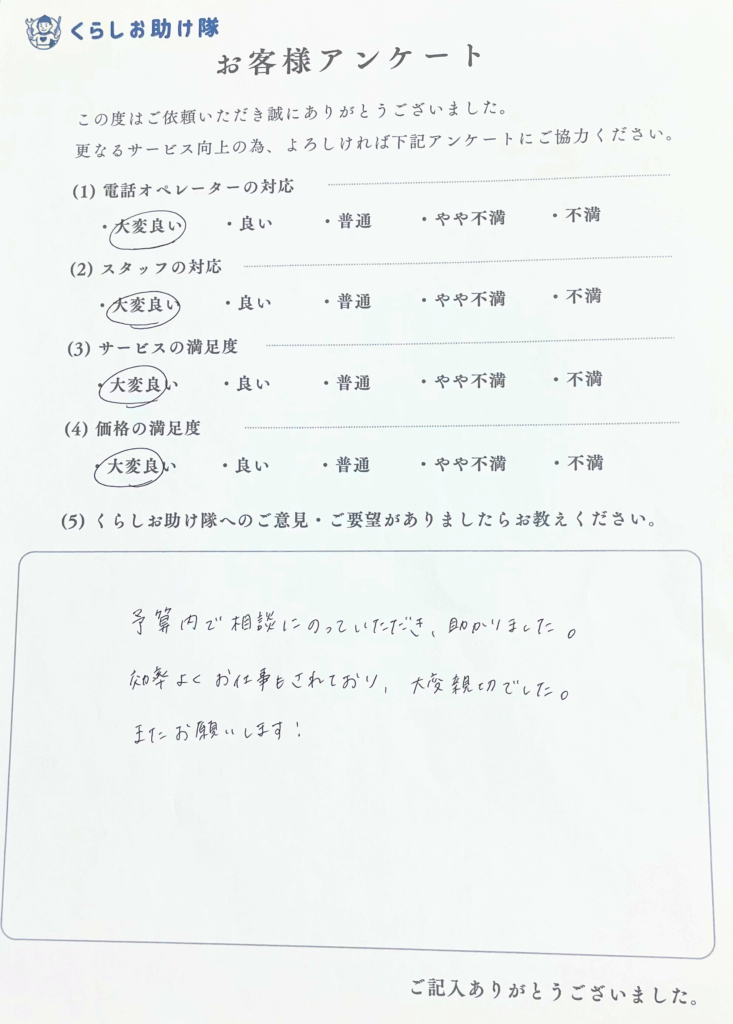 くらしお助け隊
お客様アンケート
この度はご依頼いただき誠にありがとうございました。
更なるサービス向上の為、よろしければ下記アンケートにご協力ください。
(1) 電話オペレーターの対応
・大変良い ・良い ・普通 ・やや不満 ・不満
(2) スタッフの対応
・大変良い ・良い ・普通 ・やや不満 ・不満
(3) サービスの満足度
・大変良い ・良い ・普通 ・やや不満 ・不満
(4) 価格の満足度
・大変良い ・良い ・普通 ・やや不満 ・不満
(5) くらしお助け隊へのご意見・ご要望がありましたらお教えください。
予算内で相談にのっていただき、助かりました。
効率よくお仕事もされており、大変親切でした。
またお願いします!
ご記入ありがとうございました。